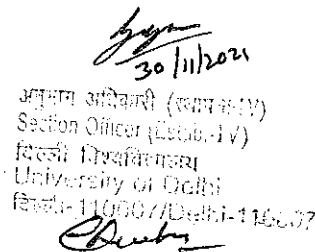 30/11/2021
अनुभाग अधिकारी (स्थापना-IV)
Section Officer (Estab.-IV)
दिल्ली विश्वविद्यालय
University of Delhi
दिल्ली-110007/Delhi-110007